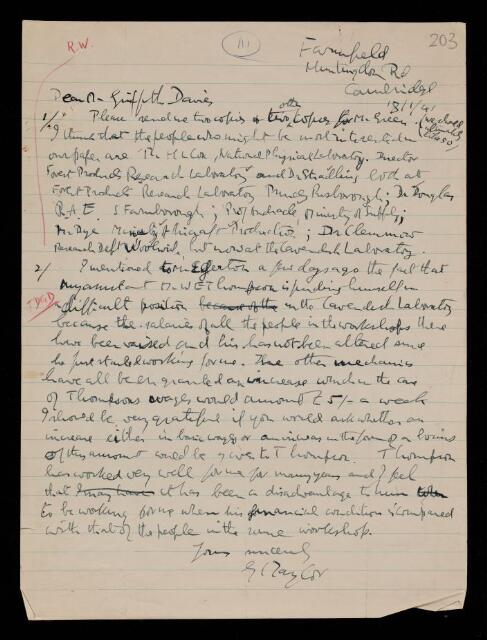 R.W.
A1
203
Farmfield
Huntingdon Rd
Cambridge
13/1/41
Dear Mr Griffith Davies
1/ Please send me two copies & two other copies for Mr Green. (enclosed
I think that the people who might be most interested in
our paper are Mr H L Cox, National Physical Laboratory. Director
Forest Products Research Laboratory and Dr Stradling
Forest Products Research Laboratory Princes Risborough; Dr Douglas
R.A.E. S Farnborough; Prof Andrade, Ministry of Supply;
Mr Pye Ministry of Aircraft Production; Dr Clemmow
Research Dept Woolwich, but now at the Cavendish Laboratory
2/ I mentioned to Egerton a few days ago the fact that
my assistant Mr W E Thompson is finding himself in
a difficult position because of the in the Cavendish Laboratory
because the salaries of all the people in the workshops there
have been raised and his has not been altered since
he first started working for me. The other mechanics
have all been granted an increase which in the case
of Thompsons wages would amount to 5/- a week
I should be very grateful if you would ask whether an
increase either in basic wages or an increase in the form of a bonus
of this amount could be given to Thompson. Thompson
has worked very well for me for many years and I feel
that I may have it has been a disadvantage to him
to be working for me when his financial condition is compared
with that of the people in the same workshop.
Yours sincerely
G I Taylor